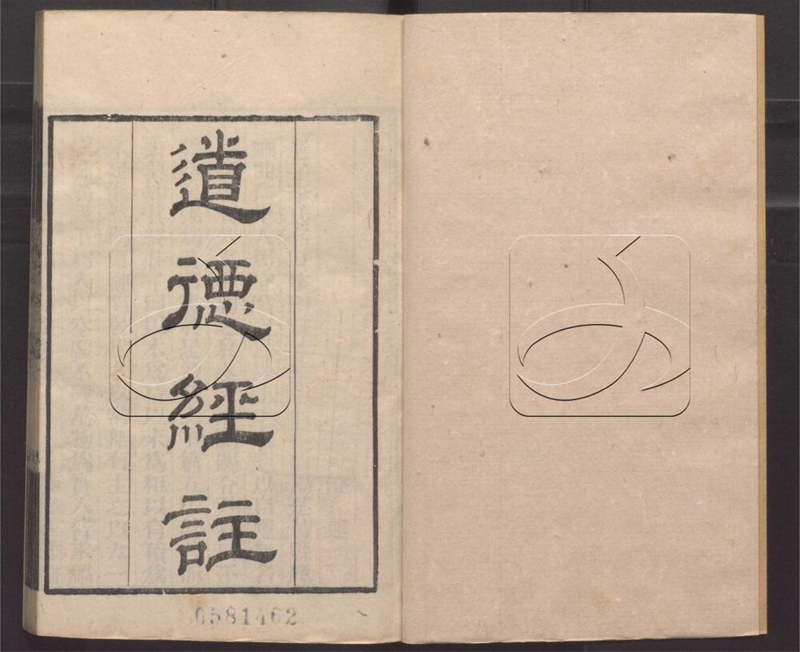 道德經註
0581462